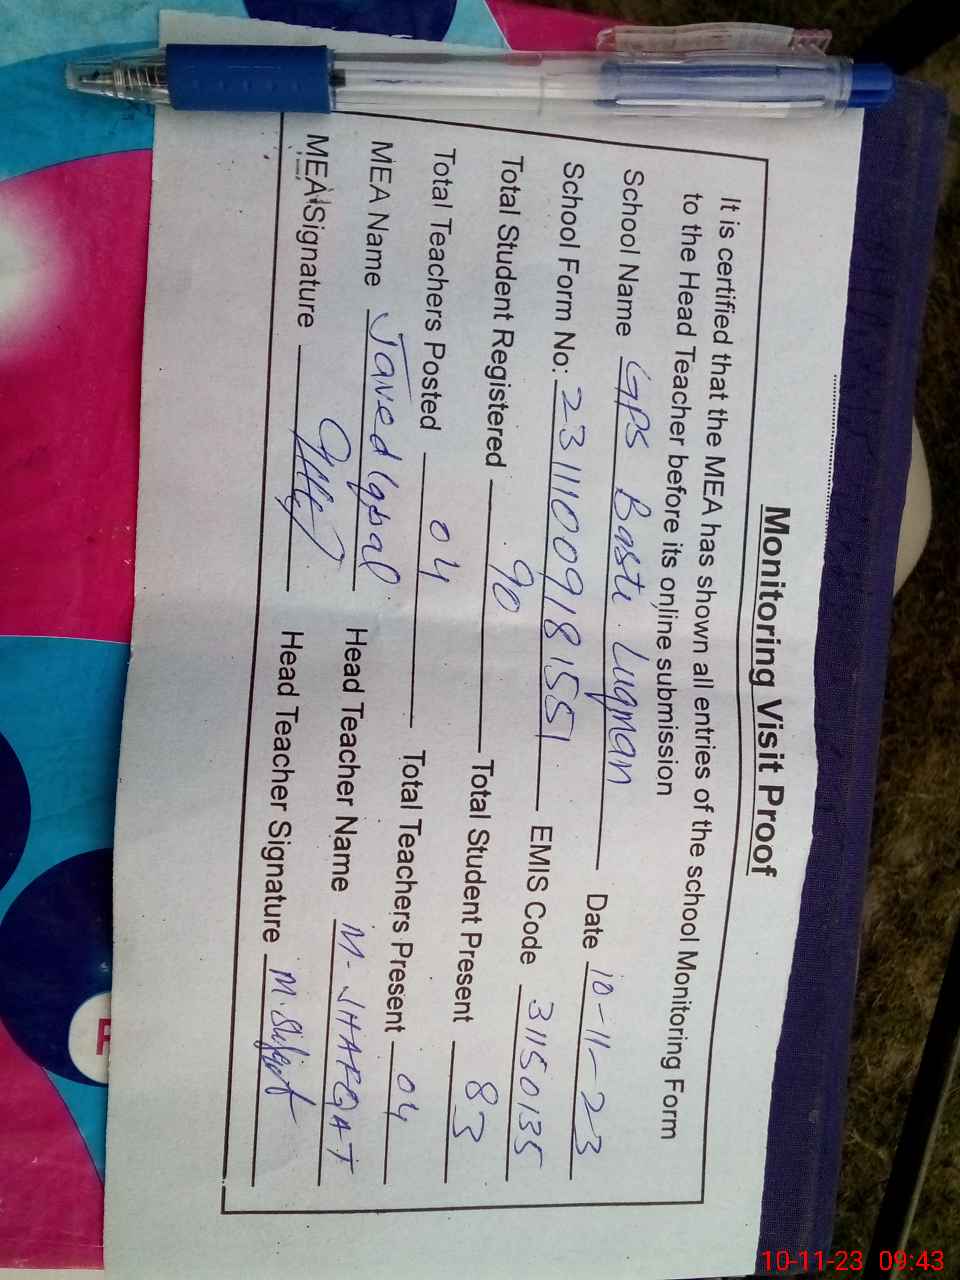 Monitoring Visit Proof
It is certified that the MEA has shown all entries of the school Monitoring Form
to the Head Teacher before its online submission
School Name GPS Basti Luqman Date 10-11-23
School Form No: 23111009181551 EMIS Code 31150135
Total Student Registered 90 Total Student Present 83
Total Teachers Posted 04 Total Teachers Present 04
MEA Name Javed Iqbal Head Teacher Name M.
MEA Signature Head Teacher Signature M.
10-11-23 09:43